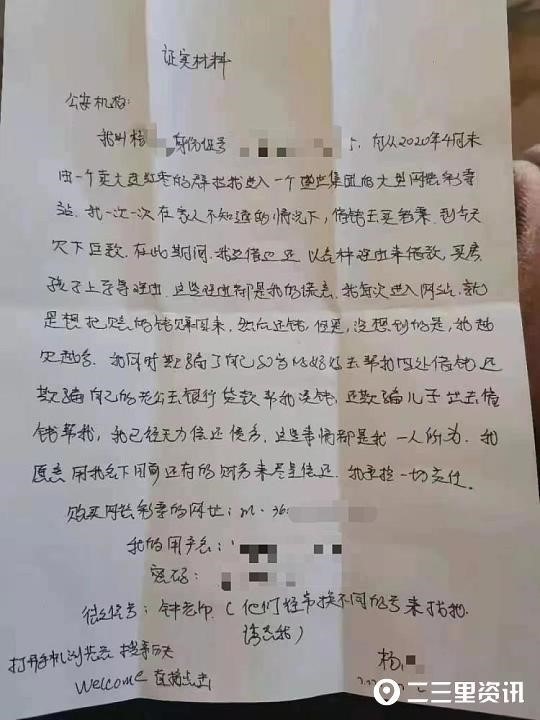 证实材料
公安机构:
我叫杨 身份证号 5. 自从2020年4月末
由一个卖大连红枣的群拉我进入一个 集团的大型网络彩票
站. 我一次一次在家人不知道的情况下, 借钱去买彩票. 到今天
欠下巨款. 在此期间. 我边借边还 以各种理由来借款, 买房
孩子上学等理由. 这些理由都是我的谎言. 我每次进入网站, 就
是想把 的钱赚回来, 然后还钱, 但是, 没想到的是, 我越
欠越多. 我同时欺骗了自己80岁妈妈去帮我四处借钱 还
欺骗自己的老公去银行贷款帮我还钱, 还欺骗儿子出去借
钱帮我, 我已经无力偿还债务. 这些事情都是我一人所为. 我
愿意用我名下目前还有的财务来尽量偿还. 我承担一切责任.
购买网络彩票的网址: m·36
我的用户名:
密码:
微信号: 钟老师. ( 他们经常换不同的号来找我.
请 我 )
打开手机浏览器 搜索历史
welcome 直接点击
杨
二三里资讯